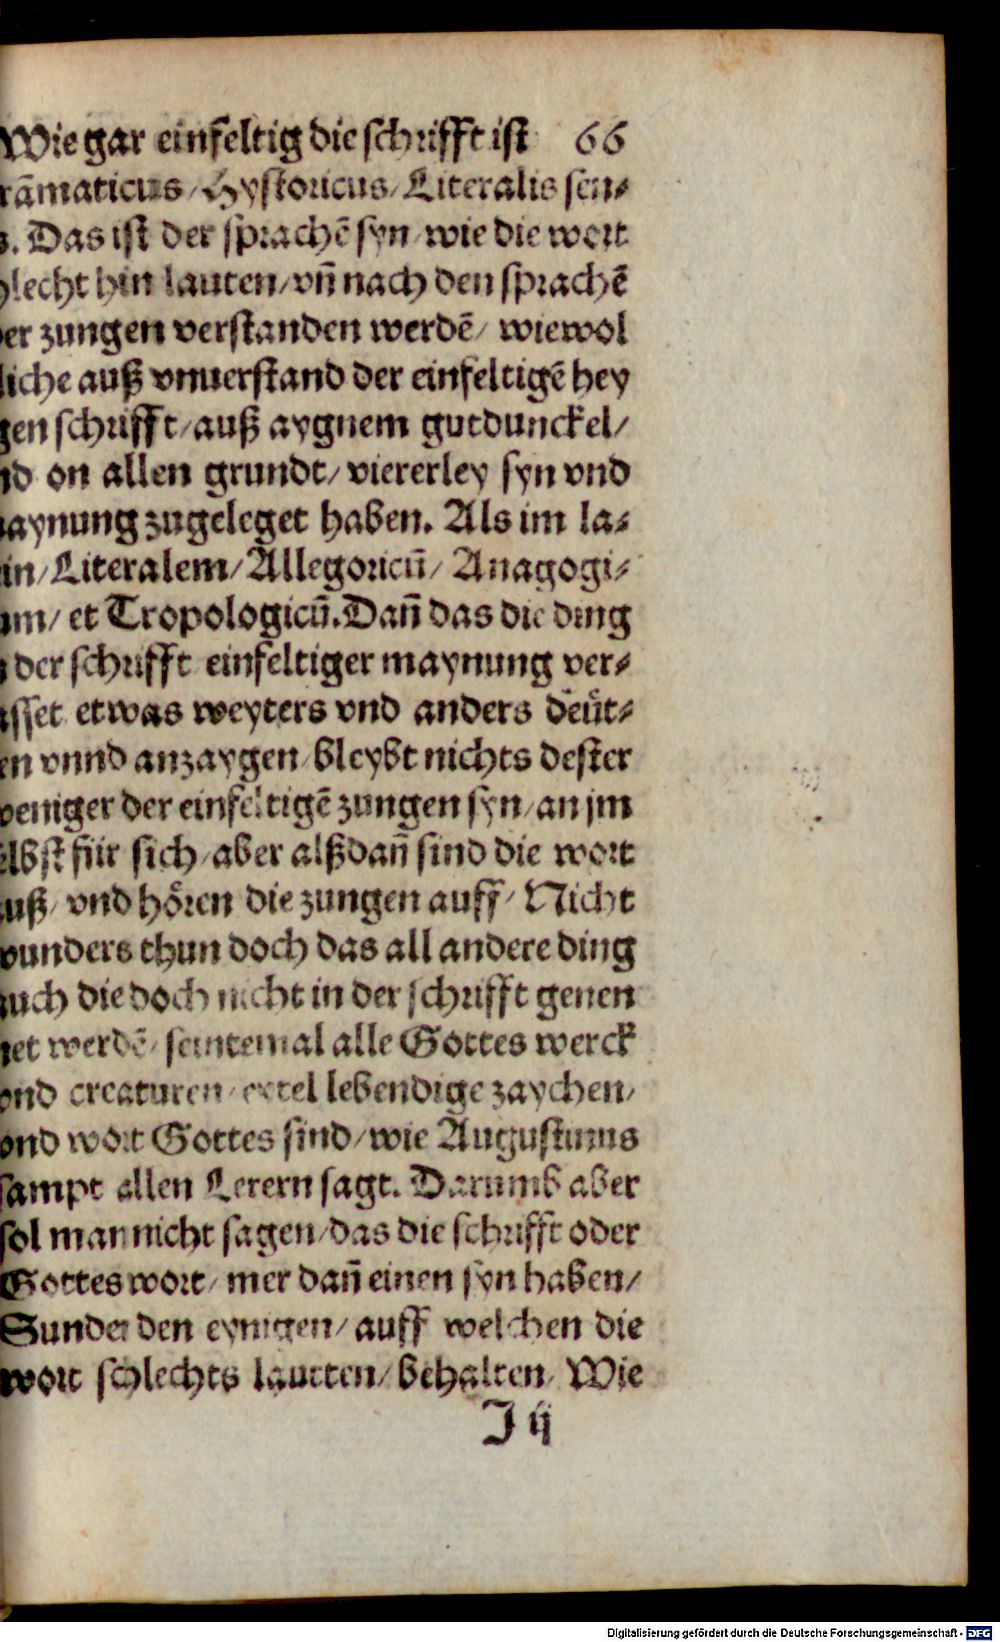 Wie gar einfeltig die schrifft ist 66
rãmaticus / Hystoricus / Literalis sen⸗
. Das ist der sprachẽ syn / wie die wort
lecht hin lauten / vñ nach den sprachẽ
er zungen verstanden werdẽ / wiewol
liche auß vnuerstand der einfeltigẽ hey
gen schrifft / auß aygnem gutdunckel /
nd on allen grundt / viererley syn vnd
aynung zugeleget haben. Als im la⸗
in / Literalem / Allegoricũ / Anagogi⸗
um / et Tropologicũ. Dañ das die ding
der schrifft einfeltiger maynung ver⸗
asset etwas weyters vnd anders deüt⸗
en vnnd anzaygen / bleybt nichts dester
weniger der einfeltigẽ zungen syn / an jm
elbst für sich / aber alßdañ sind die wort
auß / vnd hören die zungen auff / Nicht
wunders thun doch das all andere ding
auch die doch nicht in der schrifft genen
net werdẽ / seintemal alle Gottes werck
vnd creaturen / eytel lebendige zaychen /
vnd wort Gottes sind / wie Augustinus
sampt allen Lerern sagt. Darumb aber
sol man nicht sagen / das die schrifft oder
Gottes wort / mer dañ einen syn haben /
Sunder den eynigen / auff welchen die
wort schlechts lautten / behalten / Wie
J ij
Digitalisierung gefördert durch die Deutsche Forschungsgemeinschaft - DFG